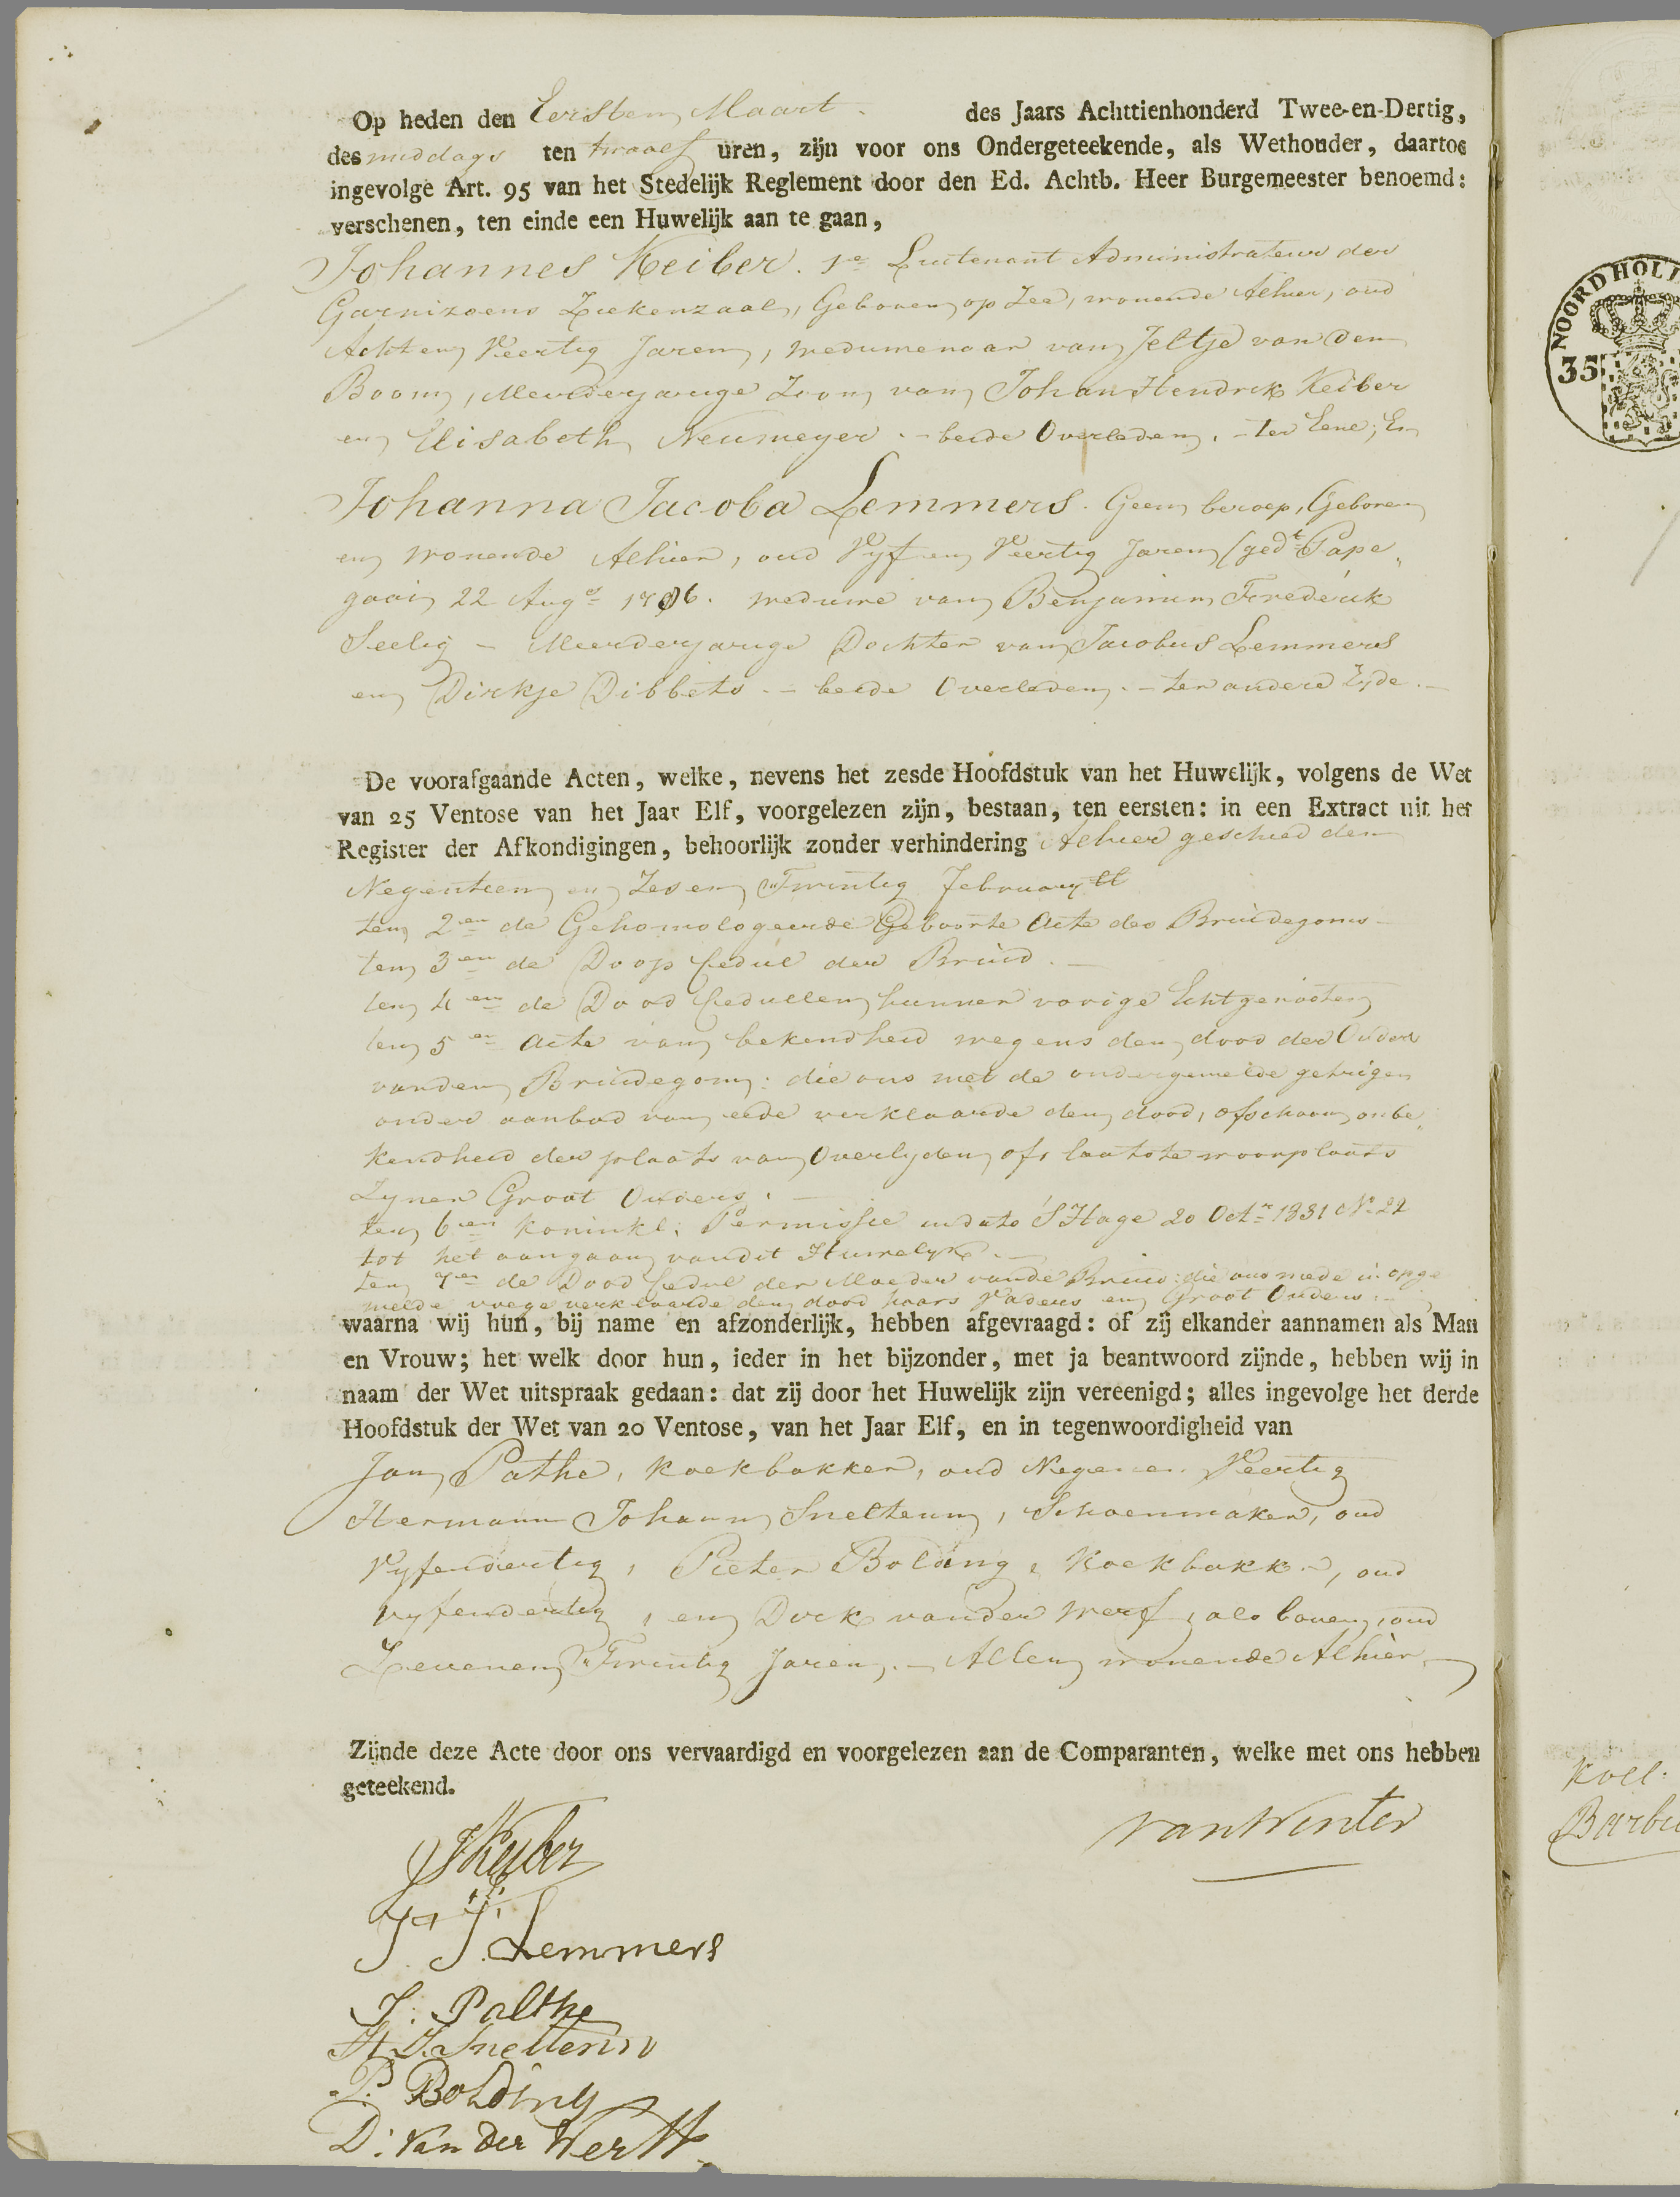 Op heden den Eersten Maart. des Jaars Achttienhonderd Twee-en-Dertig,
des middags ten twaalf uren, zijn voor ons Ondergeteekende, als Wethouder, daartoe
ingevolge Art. 95 van het Stedelijk Reglement door den Ed. Achtb. Heer Burgemeester benoemd:
verschenen, ten einde een Huwelijk aan te gaan,
Johannes Keiber. 1e Luitenant Administrateur der
Garnizoens Ziekenzaal, Geboren op Zee, wonende Alhier, oud
Acht en Veertig Jaren, weduwenaar van Jeltje van den
Boom, Meerderjarige Zoon van Johan Hendrik Keiber
en Elisabeth Neumeyer. - beide Overleden. - ter Eene; En
Johanna Jacoba Lemmers. Geen beroep, Geboren
en wonende Alhier, oud Vyf en Veertig Jaren (gedt Pape„
gaai 22 Augs 1786. weduwe van Benjamin Frederik
Seelig - Meerderjarige Dochter van Jacobus Lemmers
en Dirkje Dibbets. - beide Overleden. - ter andere Zyde. -
De voorafgaande Acten, welke, nevens het zesde Hoofdstuk van het Huwelijk, volgens de Wet
van 25 Ventose van het Jaar Elf, voorgelezen zijn, bestaan, ten eersten: in een Extract uit het
Register der Afkondigingen, behoorlijk zonder verhindering Alhier geschied den
Negentien en Zes en Twintig February ll
ten 2en de Gehomologeerde Geboorte Acte des Bruidegoms -
ten 3en de Doop Cedul der Bruid. -
ten 4en de Dood Cedullen hunner vorige Echtgenooten
ten 5en Acte van bekendheid wegens den dood der Ouders
van den Bruidegom: die ons met de ondergemelde getuigen
onder aanbod van eede verklaarde den dood, ofschoon onbe„
kendheid der plaats van Overlyden of laatste woonplaats
Zyner Groot Ouders. -
ten 6en Koninkl. Permissie in dato 'S Hage 20 Octr 1831 No 22
tot het aangaan van dit Huwelyk. -
ten 7en de Dood Cedul der Moeder van de Bruid: die ons mede in opge
melde voege verklaarde den dood haars Vaders en Groot Ouders. -
waarna wij hun, bij name en afzonderlijk, hebben afgevraagd: of zij elkander aannamen als Man
en Vrouw; het welk door hun, ieder in het bijzonder, met ja beantwoord zijnde, hebben wij in
naam der Wet uitspraak gedaan: dat zij door het Huwelijk zijn vereenigd; alles ingevolge het derde
Hoofdstuk der Wet van 20 Ventose, van het Jaar Elf, en in tegenwoordigheid van
Jan Pathe, Koekbakker, oud Negen en Veertig
Hermann Johann Snelteun, Schoenmaker, oud
Vyfendertig, Pieter Bolding, Koekbakker, oud
vyfendertig, en Dirk van der Werf, als boven, oud
Zeven en Twintig Jaren. - Allen wonende Alhier. -
Zijnde deze Acte door ons vervaardigd en voorgelezen aan de Comparanten, welke met ons hebben
geteekend.
van Winter
J Keiber
J. J. Lemmers
J. Palthe
H. J. Snelten
P. Bolding
D. van der Werff
NOORD HOLL
35
Koel.
Barbe